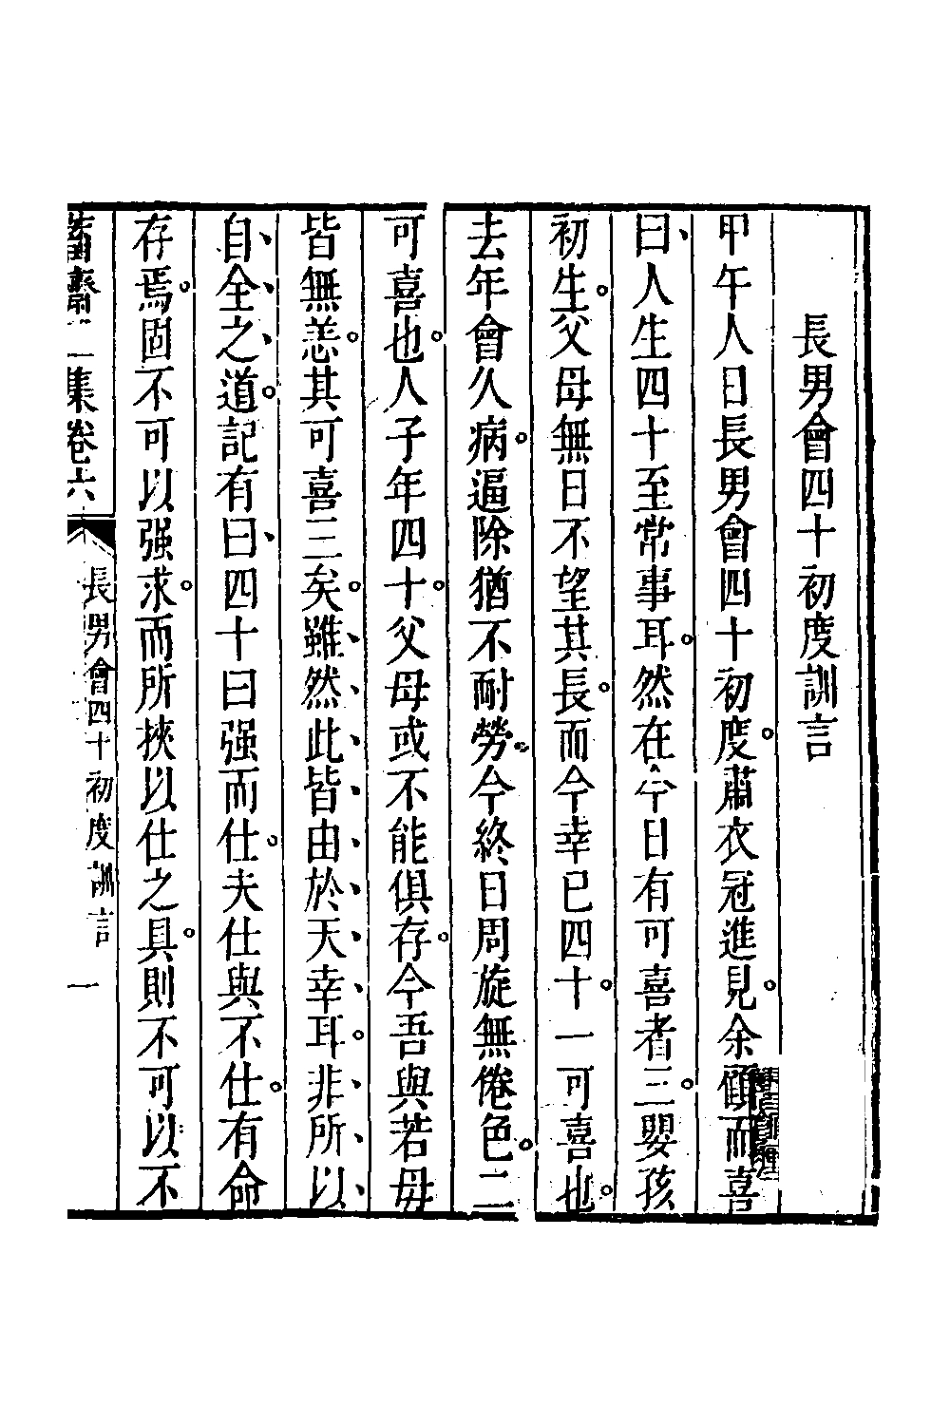 長男會四十初度訓言
甲午人日長男會四十初度。肅衣冠進見。余顧而喜
曰、人生四十至常事耳。然在今日有可喜者三。嬰孩
初生。父母無日不望其長。而今幸已四十。一可喜也。
去年會久病。逼除猶不耐勞。今終日周旋無倦色。二
可喜也。人子年四十。父母或不能俱存。今吾與若毋
皆無恙。其可喜三矣。雖、然、此、皆、由、於、天、幸、耳。非、所、以、
自、全、之、道。記有曰、四十曰强而仕。夫仕與不仕。有命
存焉。固不可以强求。而所挾以仕之具。則不可以不
齋二集卷六
長男會四十初度訓言
一